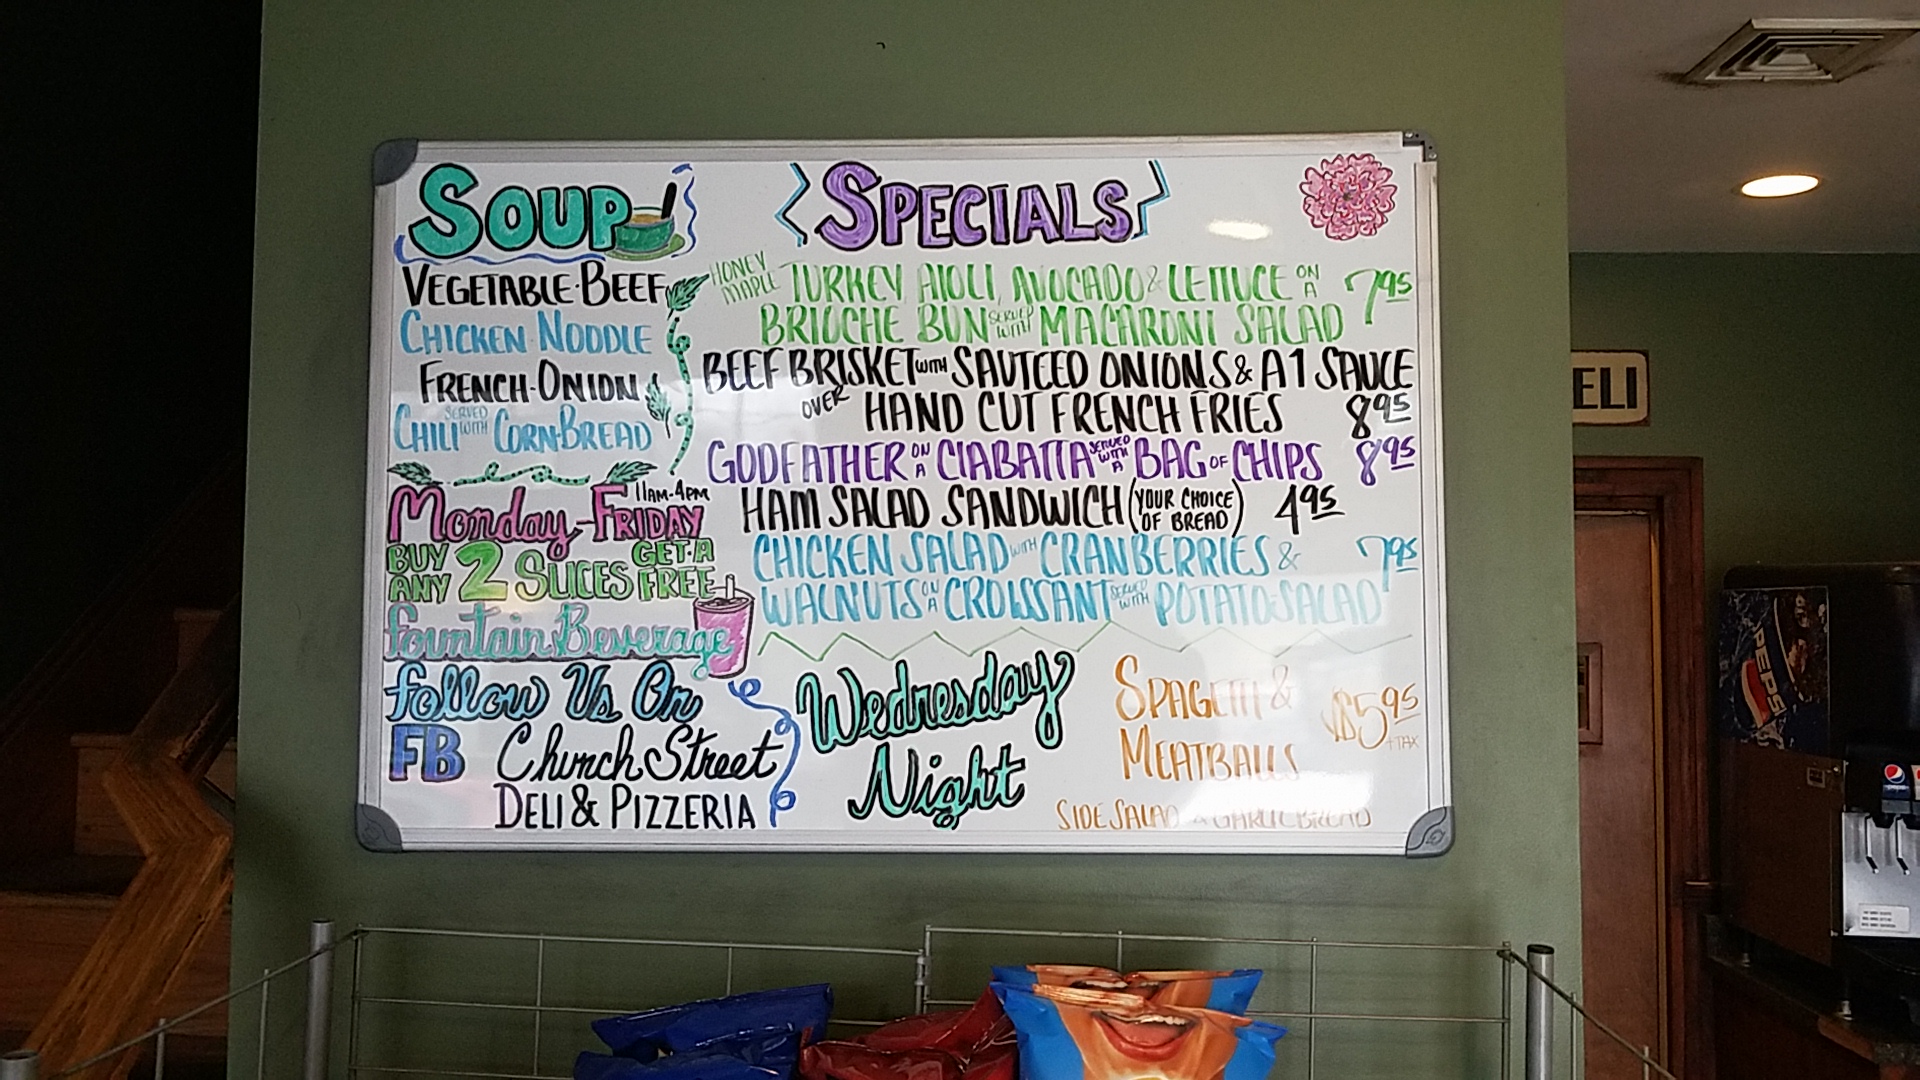 SOUP
VEGETABLE-BEEF
CHICKEN NOODLE
FRENCH-ONION
CHILI SERVED WITH CORN-BREAD
11AM-4PM
Monday-FRIDAY
BUY ANY 2 SLICES GET A FREE
fountain Beverage
follow Us On
FB Church Street
DELI & PIZZERIA
SPECIALS
HONEY MAPLE TURKEY AIOLI, AVOCADO & LETTUCE ON A 7.95
BRIOCHE BUN SERVED WITH MACARONI SALAD
BEEF BRISKET WITH SAUTEED ONIONS & A1 SAUCE
OVER HAND CUT FRENCH FRIES 8.95
GODFATHER ON A CIABATTA SERVED WITH A BAG OF CHIPS 8.95
HAM SALAD SANDWICH (YOUR CHOICE OF BREAD) 4.95
CHICKEN SALAD WITH CRANBERRIES & 7.95
WALNUTS ON A CROISSANT SERVED WITH POTATO-SALAD
Wednesday
Night
SPAGETTI &
MEATBALLS
$5.95
+TAX
SIDE SALAD & GARLIC BREAD
ELI
PEPSI
pepsi